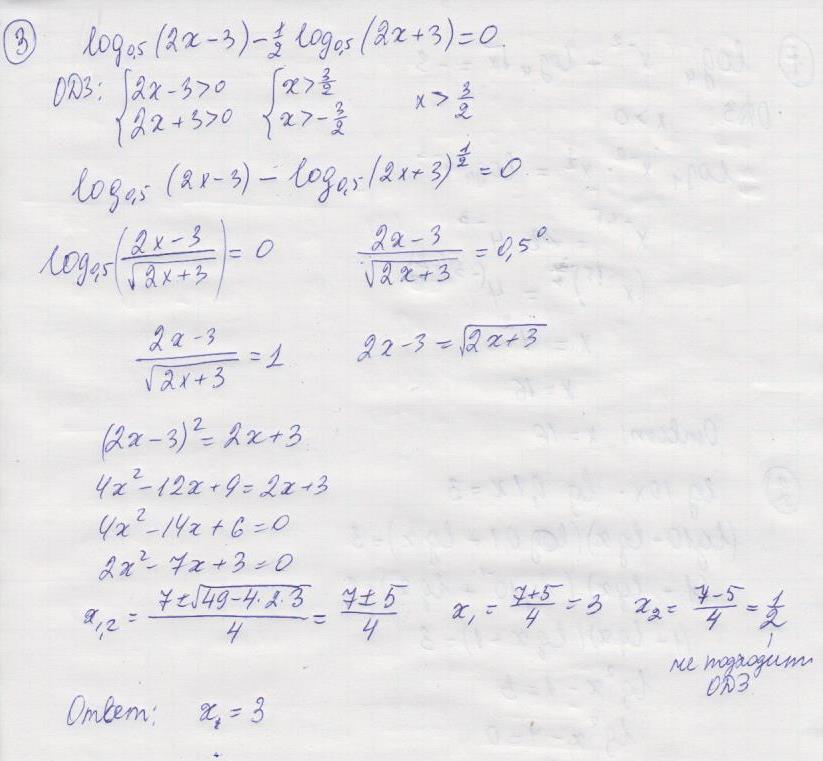 3 log₀,₅(2x-3)-½ log₀,₅(2x+3)=0
ОДЗ: {2x-3>0 {x>3/2 x>3/2
{2x+3>0 {x>-3/2
log₀,₅ (2x-3) - log₀,₅(2x+3)^½=0
log₀,₅((2x-3)/√(2x+3))=0 (2x-3)/√(2x+3)=0,5⁰
(2x-3)/√(2x+3)=1 2x-3=√(2x+3)
(2x-3)²=2x+3
4x²-12x+9=2x+3
4x²-14x+6=0
2x²-7x+3=0
x₁,₂=(7±√(49-4·2·3))/4=(7±5)/4 x₁=(7+5)/4=3 x₂=(7-5)/4=1/2
не подходит
ОДЗ
Ответ: x₁=3